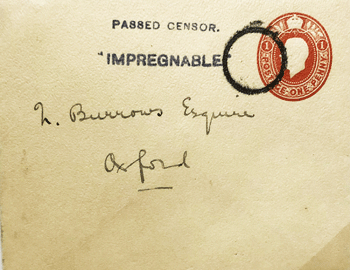 PASSED CENSOR.
"IMPREGNABLE"
1 POSTAGE·ONE·PENNY 1
Burrows Esquire
Oxford